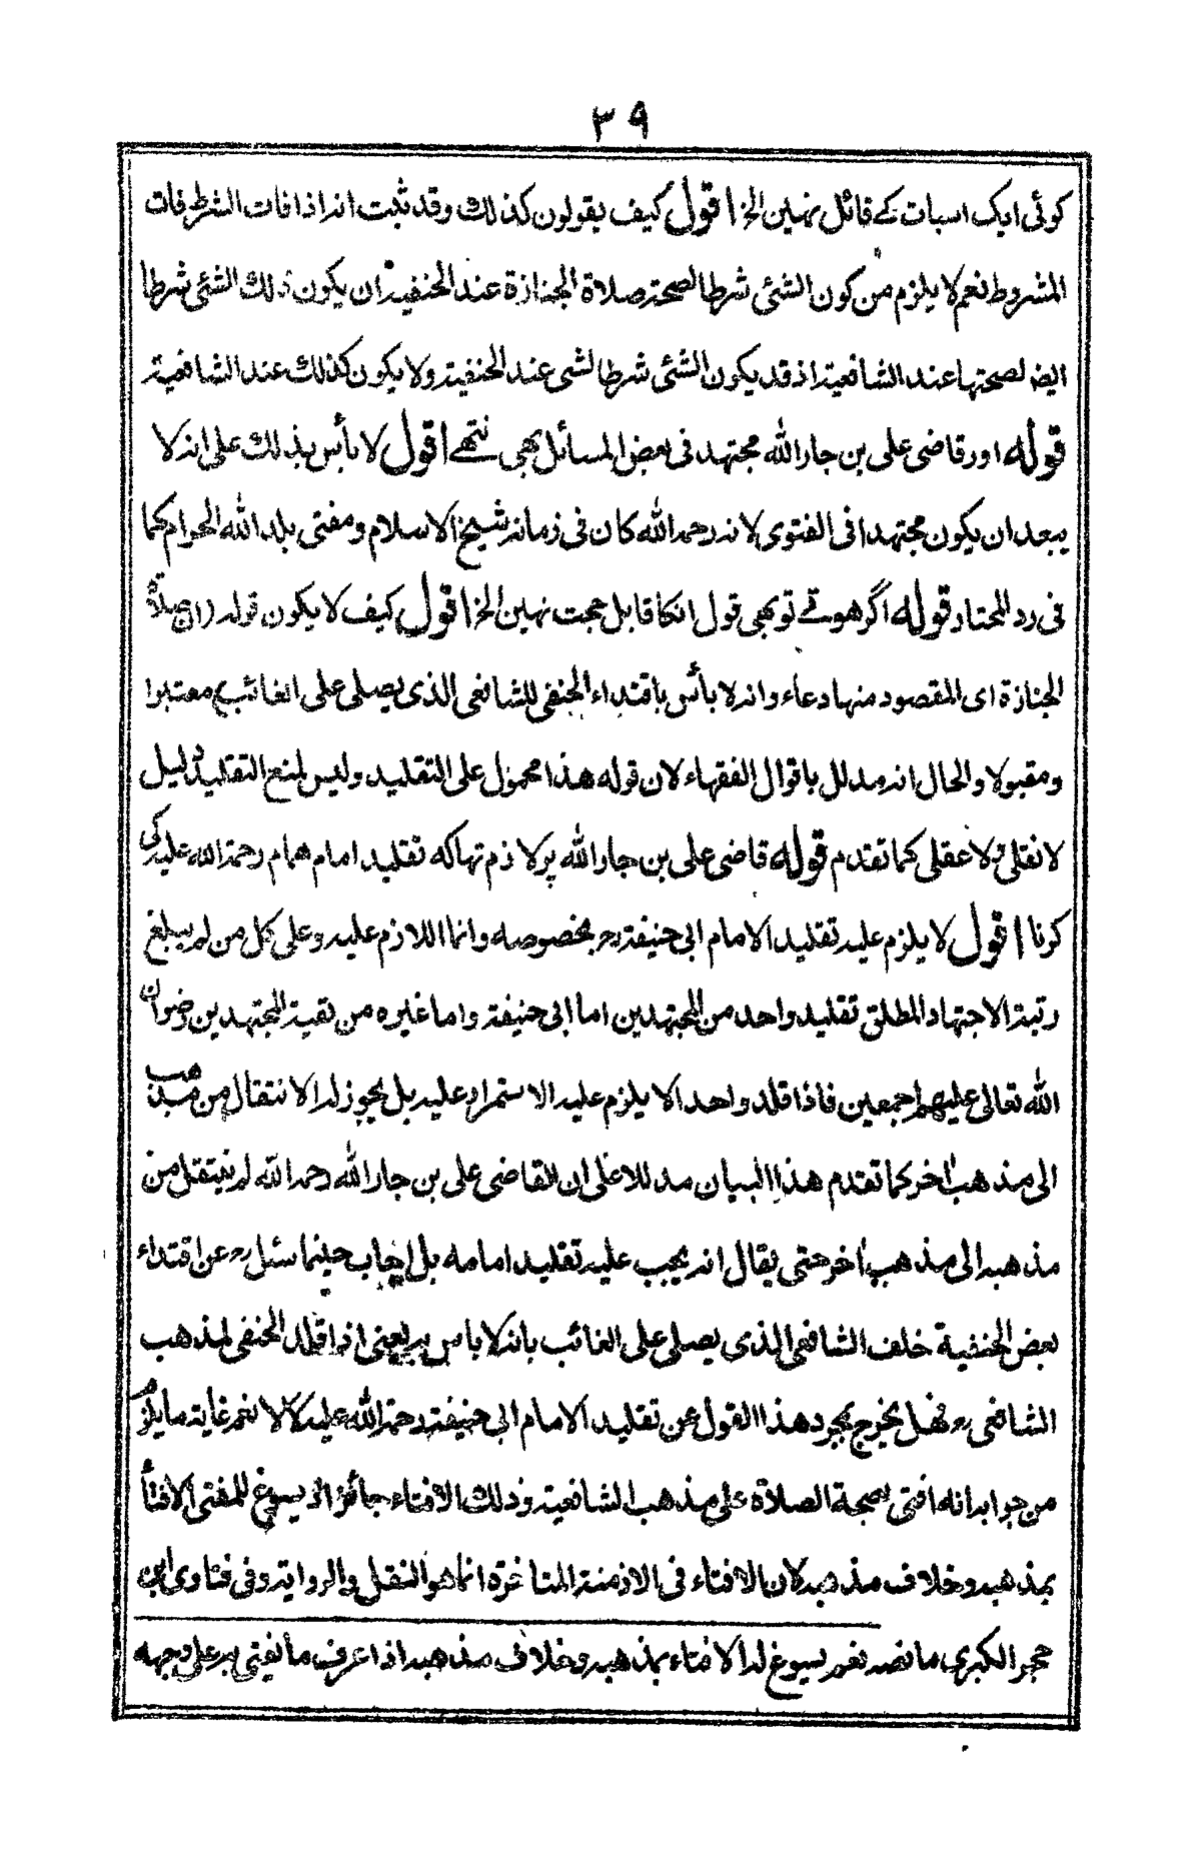 ٣٩
كوئى ايك اسبات كے قائل نہين الخ اقول كيف يقولون كذلك وقد ثبت انه اذا فات الشرط فات
المشروط نعم لا يلزم من كون الشئ شرطا لصحة صلاة الجنازة عند الحنفية ان يكون ذلك الشئ شرطا
ايضا لصحتها عند الشافعية اذ قد يكون الشئ شرطا لشئ عند الحنفية ولا يكون كذلك عند الشافعية
قوله اور قاضى على بن جار الله مجتهد فى بعض المسائل بهى نتهے اقول لا بأس بذلك على انه لا
يبعد ان يكون مجتهدا فى الفتوى لانه رحمه الله كان فى زمانه شيخ الاسلام ومفتى بلد الله الحرام كما
فى رد المحتار قوله اگر هوتے تو بهى قول انكا قابل حجت نهين الخ اقول كيف لا يكون قوله ان صلاة
الجنازة اى المقصود منها دعاء وانه لا بأس باقتداء الحنفى للشافعى الذى يصلى على الغائب معتبرا
ومقبولا والحال انه مدلل باقوال الفقهاء لان قوله هذا محمول على التقليد وليس لمنع التقليد دليل
لا نقلى ولا عقلى كما تقدم قوله قاضى على بن جار الله پر لازم تها كه تقليد امام همام رحمة الله عليه كى
كرنا اقول لا يلزم عليه تقليد الامام ابى حنيفة رح بخصوصه وانما اللازم عليه وعلى كل من لم يبلغ
رتبة الاجتهاد المطلق تقليد واحد من المجتهدين اما ابى حنيفة واما غيره من بقية المجتهدين رضوان
الله تعالى عليهم اجمعين فاذا قلد واحدا لا يلزم عليه الاستمرار عليه بل يجوز له الانتقال من مذهب
الى مذهب اخر كما تقدم هذا البيان مدللا على ان القاضى على بن جار الله رحمه الله لم ينتقل من
مذهبه الى مذهب اخر حتى يقال انه يجب عليه تقليد امامه بل اجاب حينما سئل رح عن اقتداء
بعض الحنفية خلف الشافعى الذى يصلى على الغائب بانه لا باس به يعنى اذا قلد الحنفى لمذهب
الشافعى رح فهل يخرج بمجرد هذا القول عن تقليد الامام ابى حنيفة رحمة الله عليه كلا لا نعم غاية ما يلزم
من جوابه انه افتى بصحة الصلاة على مذهب الشافعية وذلك الافتاء جائز اذ يسوغ للمفتى الافتاء
بمذهبه وخلاف مذهبه لان الافتاء فى الازمنة المتاخرة انما هو النقل والرواية وفى فتاوى ابن
حجر الكبرى ما نصه نعم يسوغ له الافتاء بمذهبه وخلاف مذهبه اذا عرف ما يفتى به على وجهه